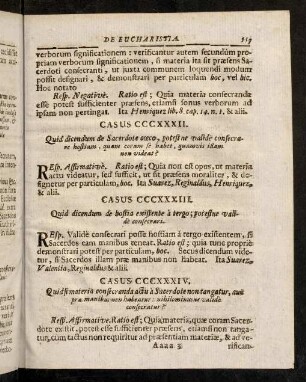 DE EUCHARISTIA.
verborum significationem : verificantur autem secundùm pro-
priam verborum significationem, si materia ita sit præsens Sa-
cerdoti consecranti, ut juxta communem loquendi modum
possit designari, & demonstrari per particulam hoc, vel hic.
Hoc notato
Resp. Negativè. Ratio est ; Quia materia consecranda
esse potest sufficienter præsens, etiamsi sonus verborum ad
ipsam non pertingat. Ita Henriquez lib. 8 cap. 14. n. 1. & alii.
CASUS CCCXXXII.
Quid dicendum de Sacerdote cæco, potest ne validè consecra-
re hostiam, quam coram se habet, quamvis illam
non videat?
REsp. Affirmativè. Ratio est; Quia non est opus, ut materia
actu videatur, sed sufficit, ut sit præsens moraliter, & de-
signetur per particulam, hoc. Ita Suarez, Reginaldus, Henriquez
& alii.
CASUS CCCXXXIII.
Quid dicendum de hostia existente à tergo; potestne vali-
dè consecrari.
REsp. Validè consecrari posse hostiam à tergo existentem, si
Sacerdos eam manibus teneat. Ratio est ; quia tunc propriè
demonstrari potest per particulam, hoc. Secus dicendum vide-
tur, si Sacerdos illam præ manibus non habeat. Ita Suarez,
Valentia, Reginaldus & alii.
CASUS CCCXXXIV.
Quid si materia consecranda actu à Sacerdote non tangatur, aut
præ manibus non habeatur : nihilominus ne validè
consecratur?
Resp. Affirmativè. Ratio est; Quia materia, quæ coram Sacer-
dote existit, potest esse sufficienter præsens, etiamsi non tanga-
tur, cum tactus non requiritur ad præsentiam materiæ, & ad ve-
Aaaa 3 rifican-